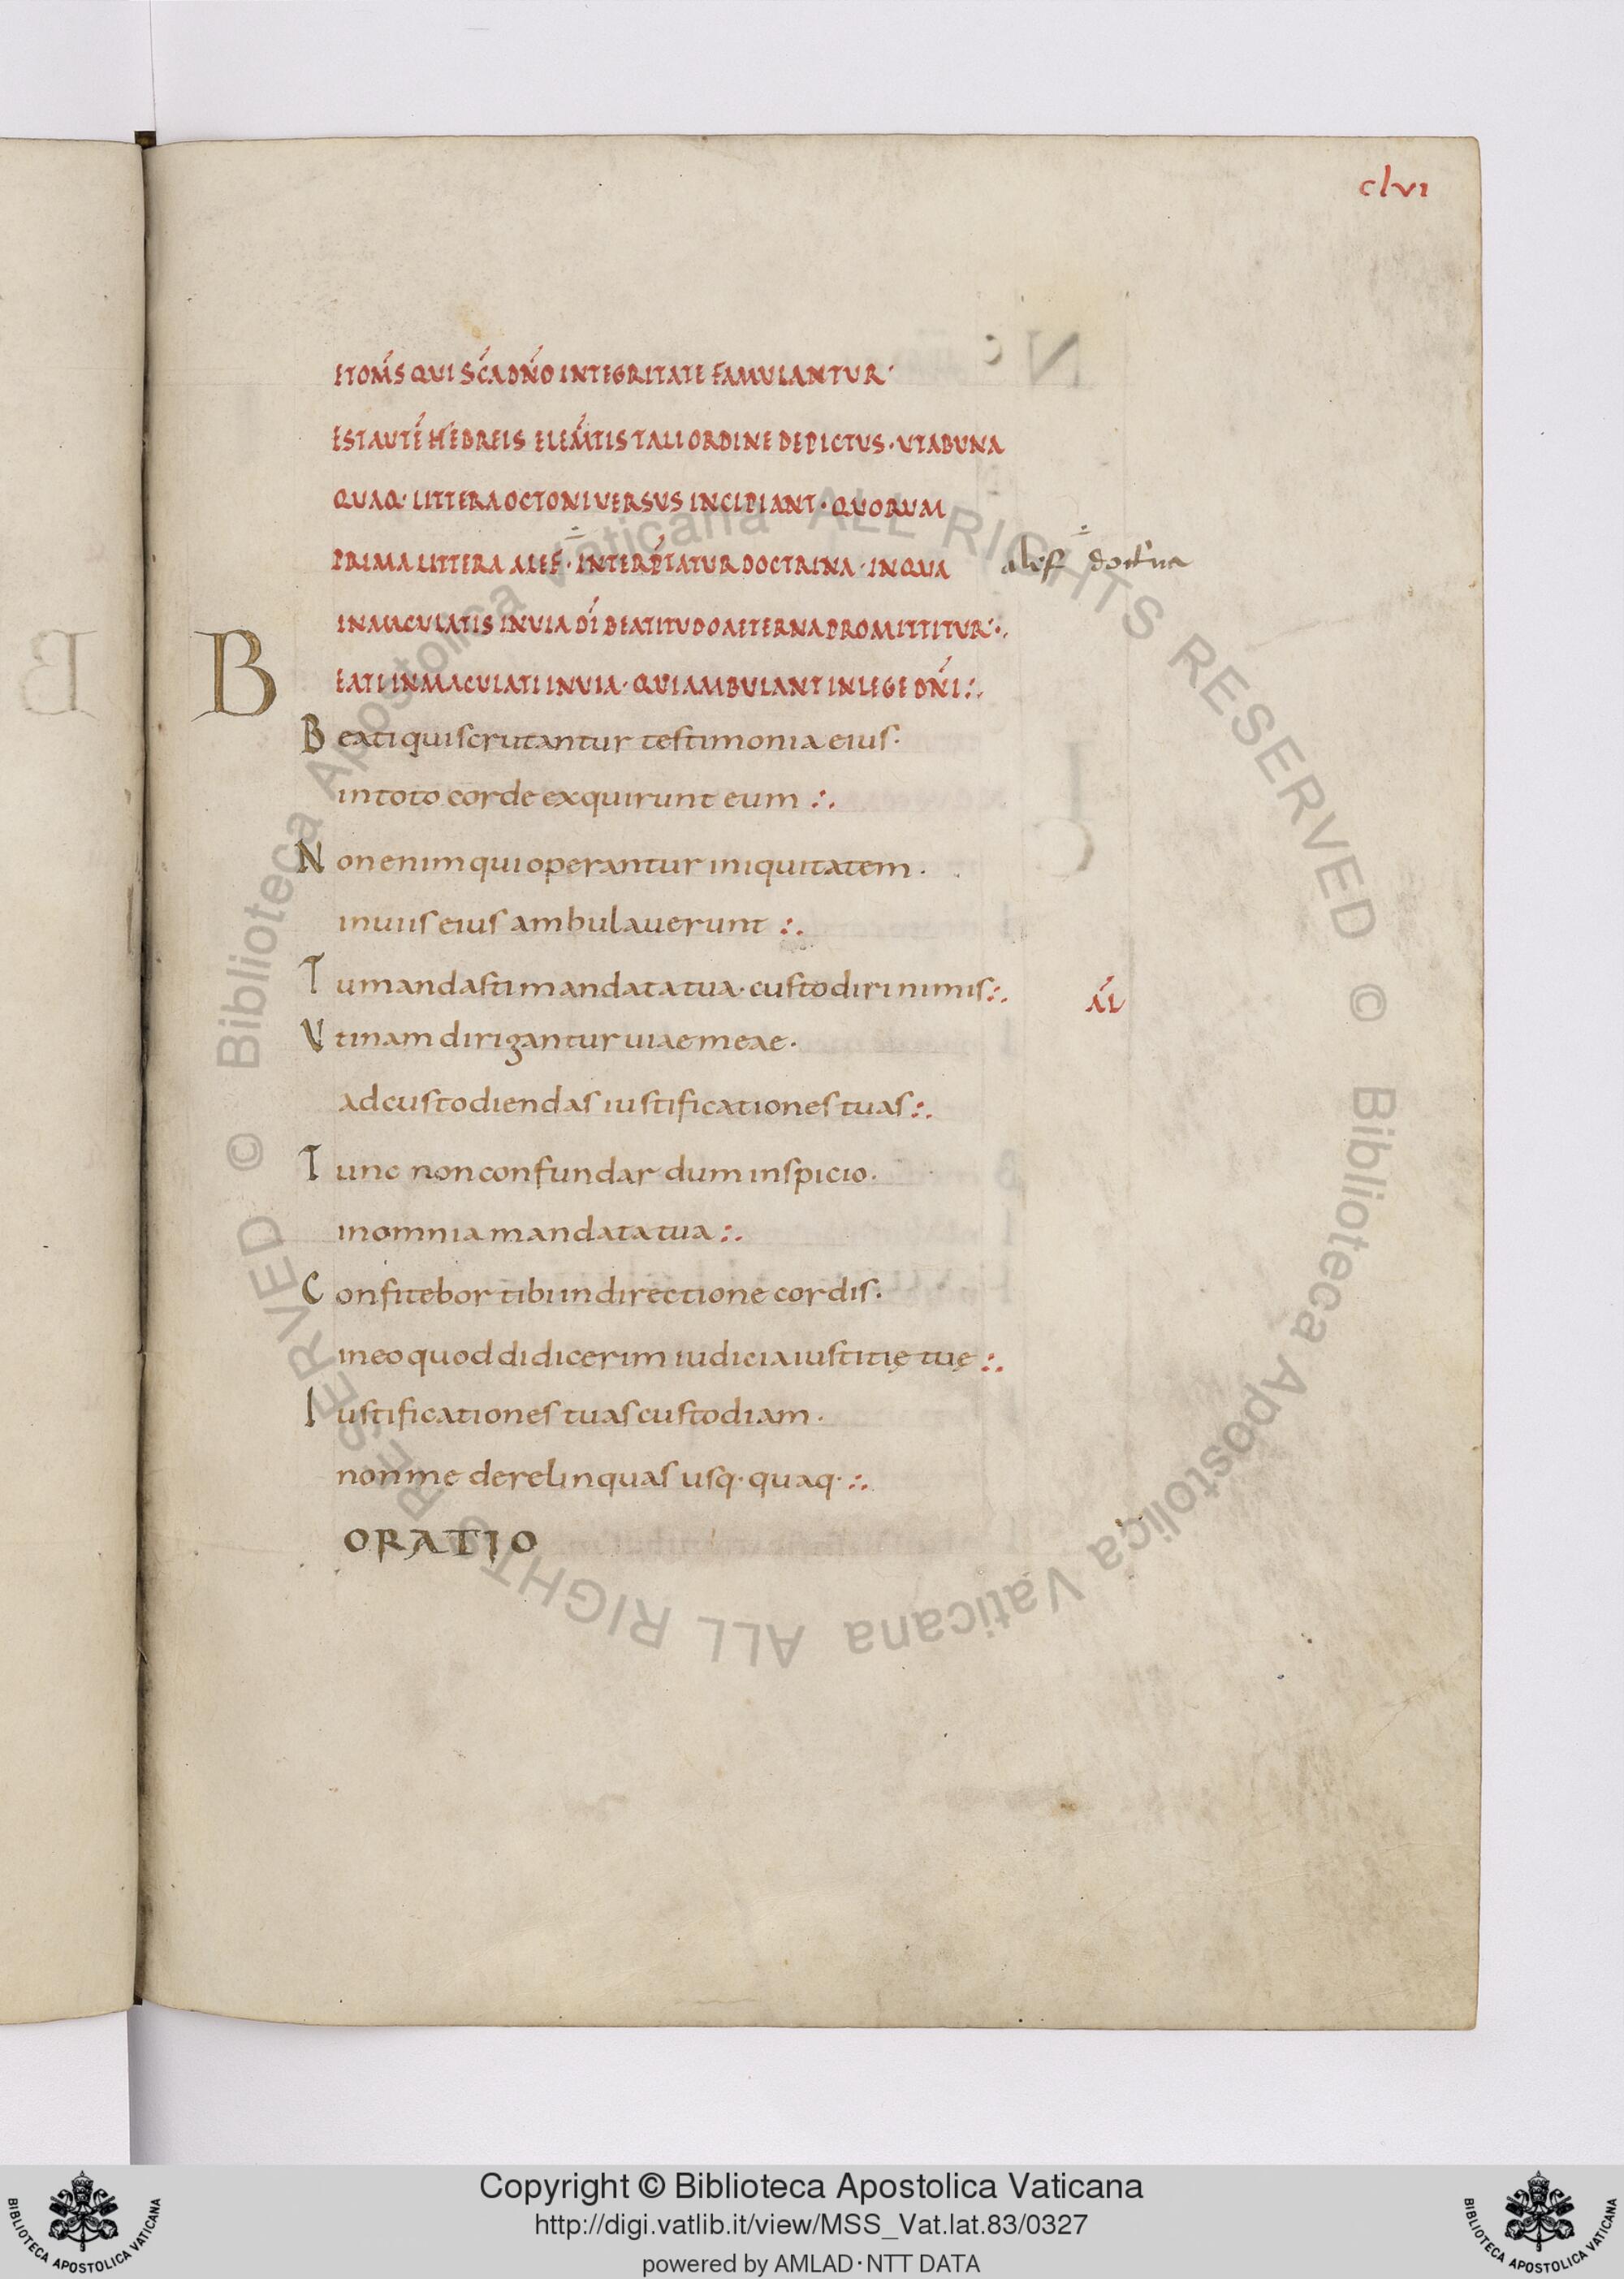 clvi
ETOM̅S QUI SC̅A DN̅O INTEGRITATE FAMULANTUR·
EST AUTE̅ HEBREIS ELEM̅TIS TALI ORDINE DEPICTUS · UT AB UNA
QUAQ· LITTERA OCTONI VERSUS INCIPIANT · QUORUM
PRIMA LITTERA ALEF · INTERP̅TATUR DOCTRINA · IN QUA
alef doct'na
INMACULATIS IN VIA DI̅ BEATITUDO AETERNA PROMITTITUR :.
BEATI INMACULATI IN VIA · QUI AMBULANT IN LEGE DN̅I :.
Beati qui scrutantur testimonia eius ·
in toto corde exquirunt eum :.
Non enim qui operantur iniquitatem ·
in uiis eius ambulauerunt :.
Tu mandasti mandata tua · custodiri nimis :.
Utinam dirigantur uiae meae ·
ad custodiendas iustificationes tuas :.
Tunc non confundar dum inspicio ·
in omnia mandata tua :.
Confitebor tibi in directione cordis ·
in eo quod didicerim iudicia iustitię tuę :.
Iustificationes tuas custodiam ·
non me derelinquas usq· quaq· :.
ORATIO
© Biblioteca Apostolica Vaticana ALL RIGHTS RESERVED © Biblioteca Apostolica Vaticana ALL RIGHTS RESERVED
Copyright © Biblioteca Apostolica Vaticana
http://digi.vatlib.it/view/MSS_Vat.lat.83/0327
powered by AMLAD · NTT DATA
BIBLIOTECA APOSTOLICA VATICANA
BIBLIOTECA APOSTOLICA VATICANA